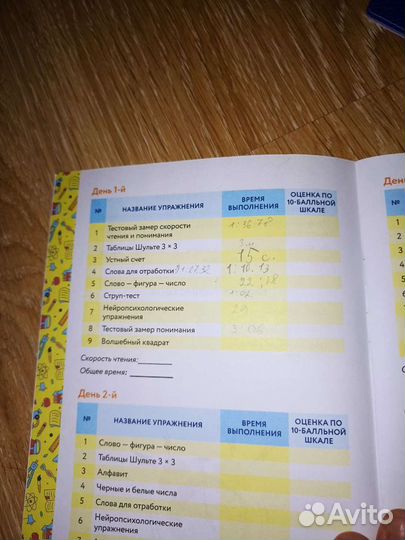 День 1-й
День
№ НАЗВАНИЕ УПРАЖНЕНИЯ ВРЕМЯ ВЫПОЛНЕНИЯ ОЦЕНКА ПО 10-БАЛЛЬНОЙ ШКАЛЕ
№
1 Тестовый замер скорости чтения и понимания 1:36.78
2 Таблицы Шульте 3 × 3
3 Устный счет 15 с.
4 Слова для отработки 1:10.13
5 Слово – фигура – число
6 Струп-тест 1:02
7 Нейропсихологические упражнения 29
8 Тестовый замер понимания
9 Волшебный квадрат
Скорость чтения:
Общее время:
День 2-й
№ НАЗВАНИЕ УПРАЖНЕНИЯ ВРЕМЯ ВЫПОЛНЕНИЯ ОЦЕНКА ПО 10-БАЛЛЬНОЙ ШКАЛЕ
1 Слово – фигура – число
2 Таблицы Шульте 3 × 3
3 Алфавит
4 Черные и белые числа
5 Слова для отработки
6 Нейропсихологические упражнения
Avito